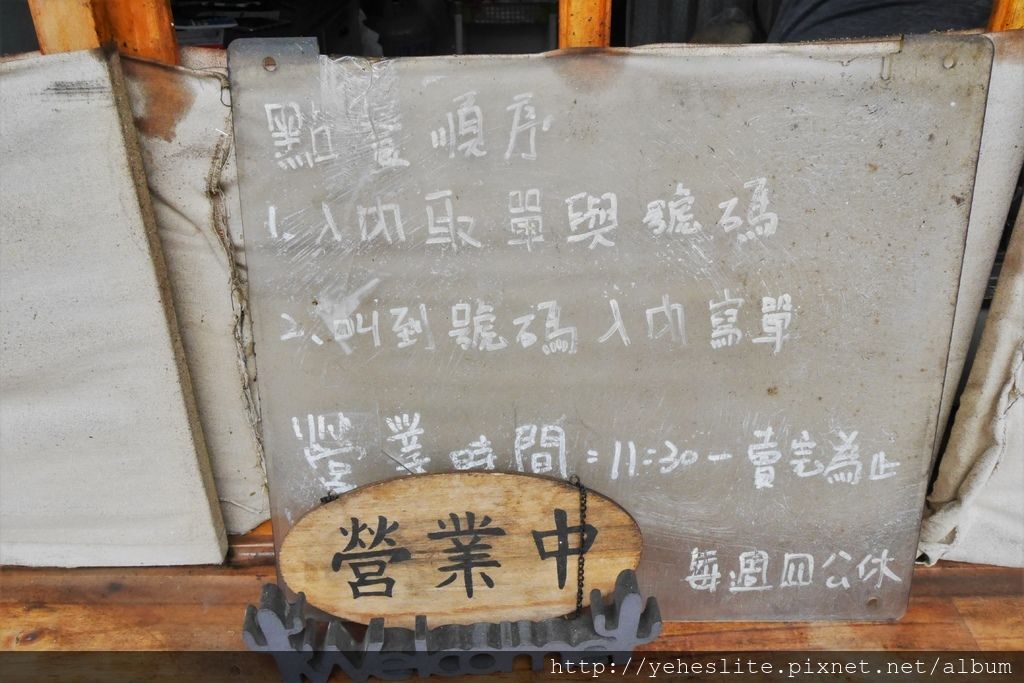 點餐順序
1.入內取單與號碼
2.叫到號碼入內寫單
營業時間:11:30-賣完為止
營業中
每週四公休
Welcome
http://yeheslite.pixnet.net/album